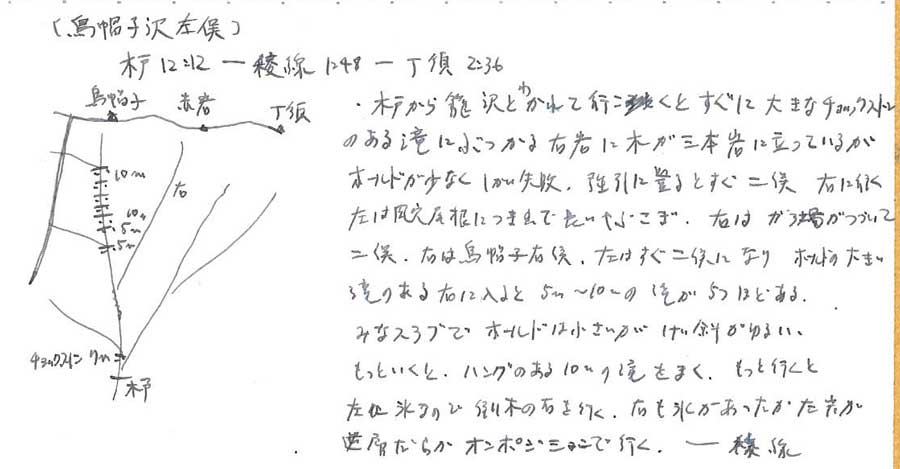 〔烏帽子沢左俣〕
木戸 12:12 ― 稜線 1:48 ― 丁須 2:36
烏帽子 赤岩 丁須
10m
右
10m
5m
5m
チョックストン 7m
木戸
・木戸から籠沢とわかれて行くとすぐに大きなチョックストン
のある滝にぶつかる 右岩に木が三本岩に立っているが
ホールドが少なく 失敗、強引に登るとすぐ二俣 右に行く
左は風穴尾根につき上で長いやぶこぎ、右は ガラ場がつづいて
二俣、右は烏帽子右俣、左はすぐ二俣になり ホールドの大きい
滝のある右に入ると 5m〜10mの滝が5つほどある、
みなスラブで ホールドは小さいが けい斜がゆるい、
もっといくと、ハングのある10mの滝をまく、もっと行くと
左に 倒木の右を行く、右も水があったが左岩が
オンポジションで行く、― 稜線